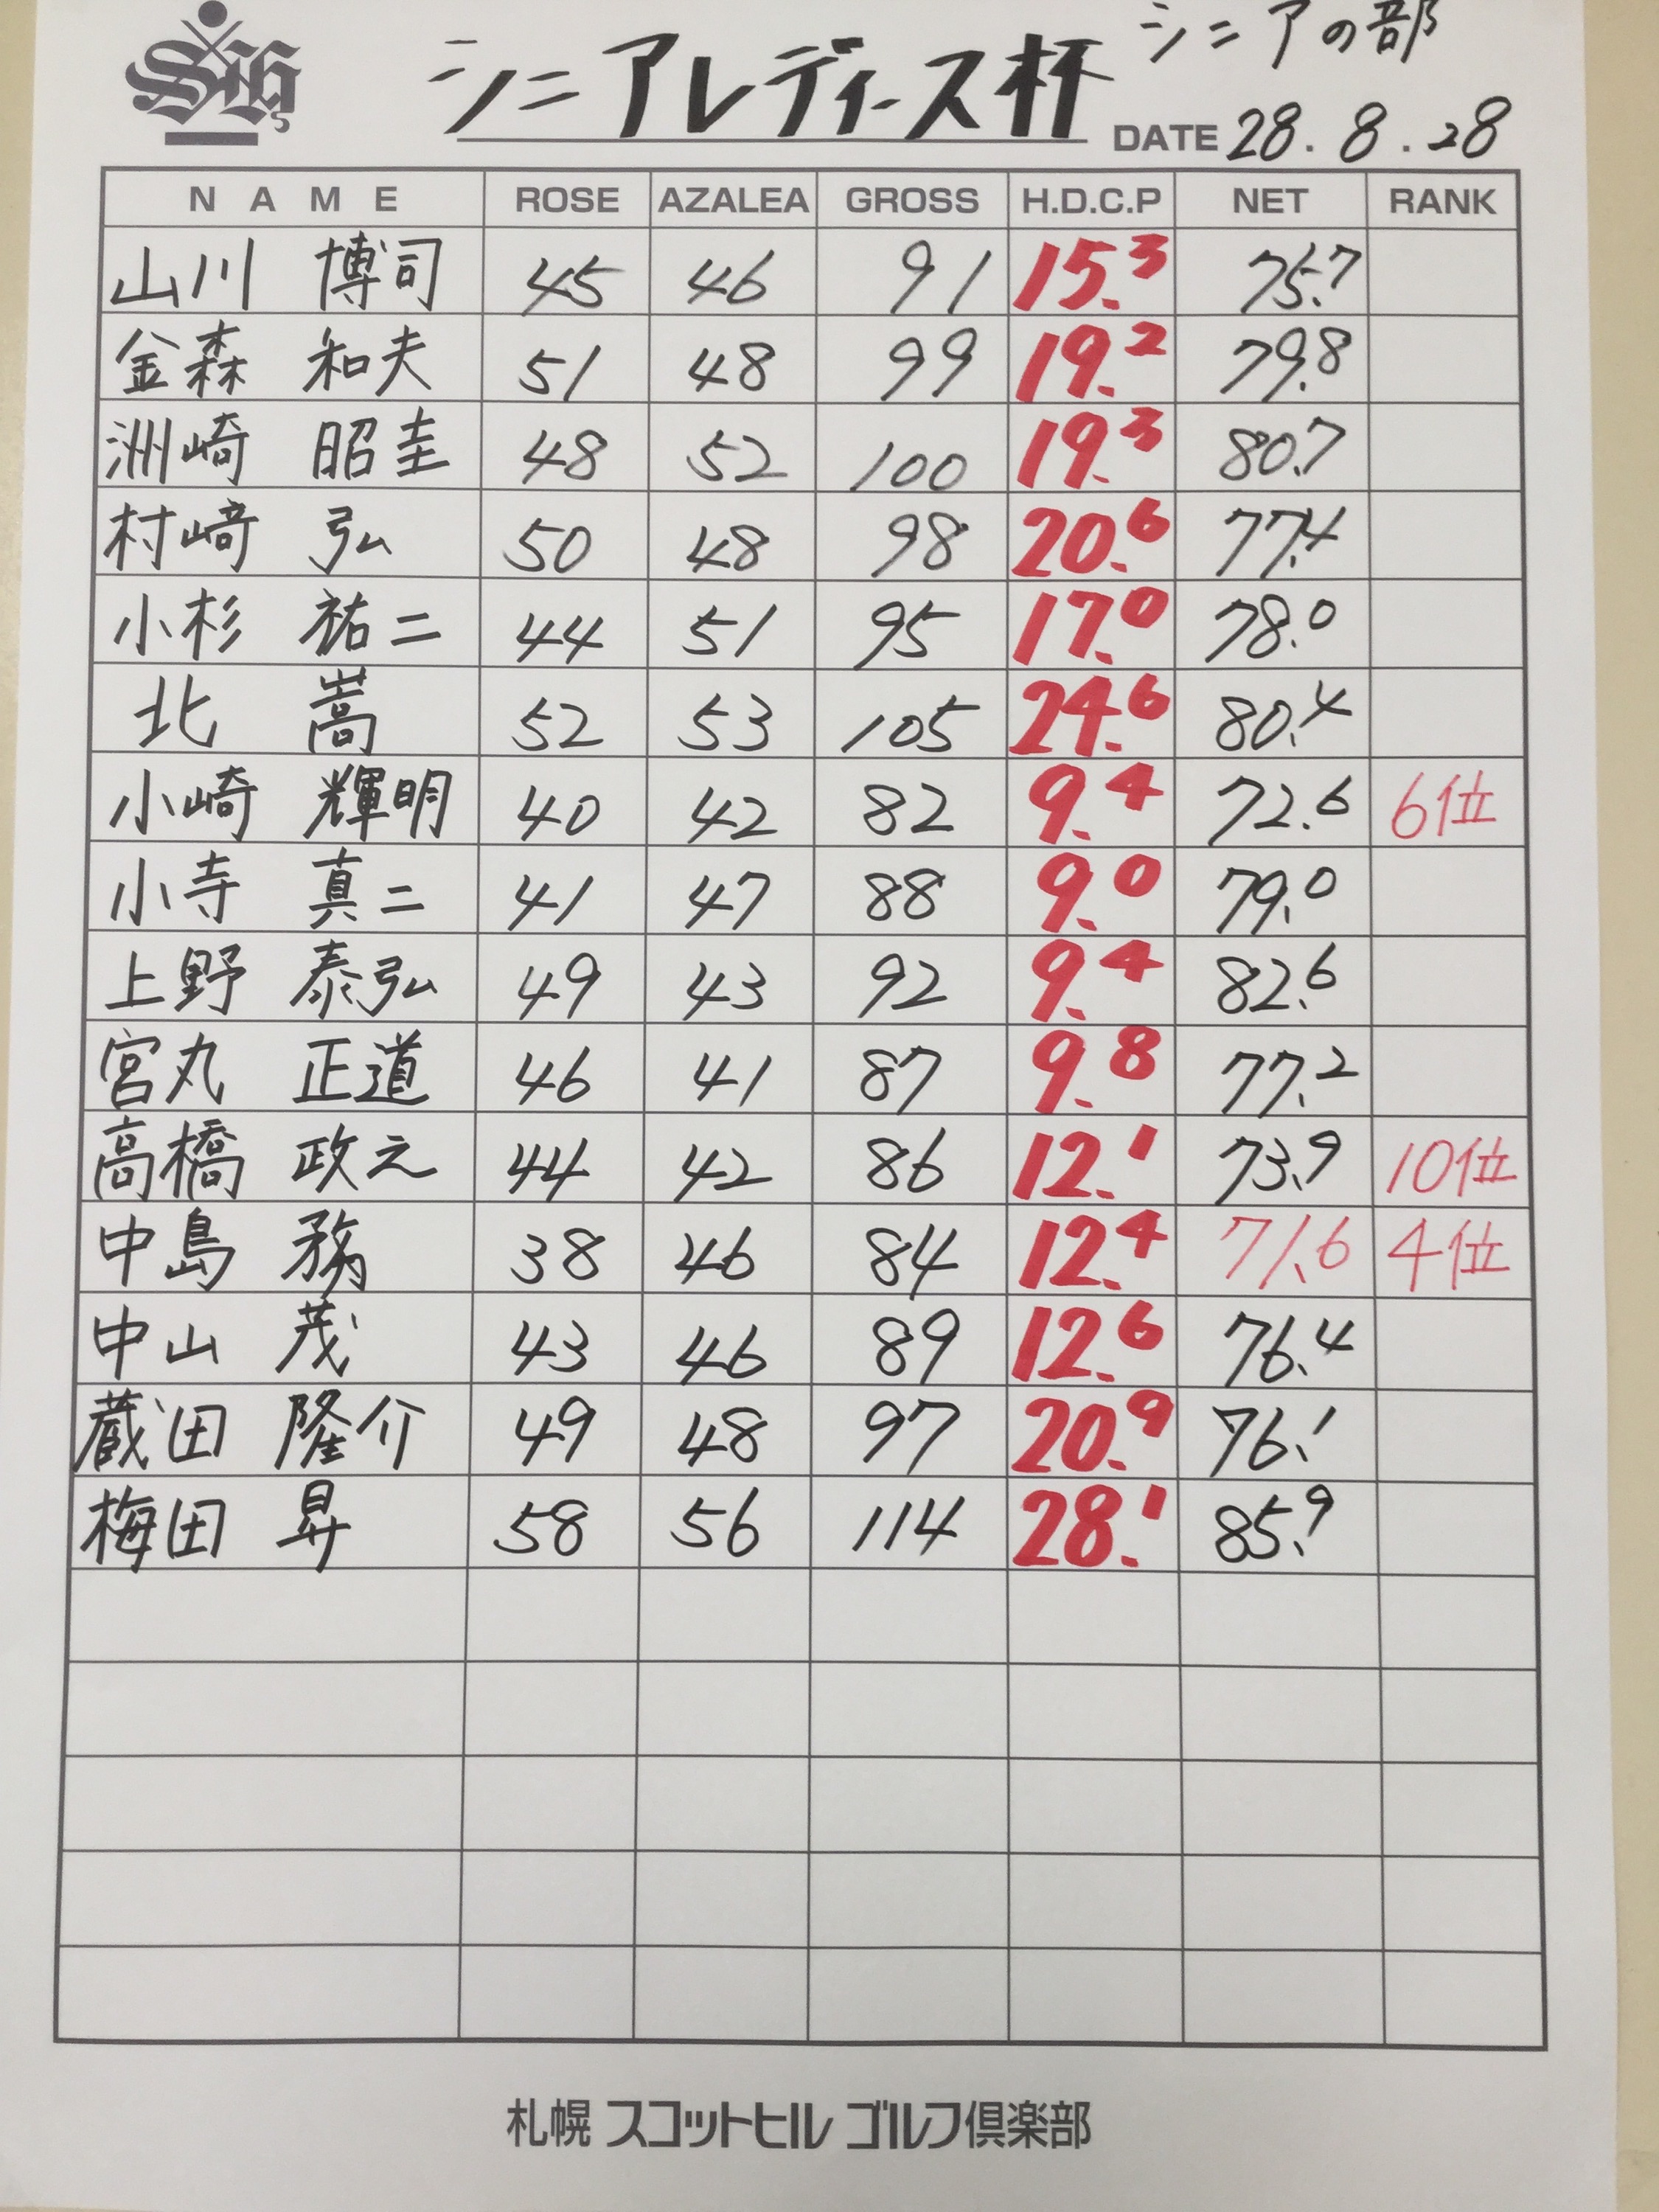 シニアの部
シニアレディース杯
DATE 28.8.28
NAME ROSE AZALEA GROSS H.D.C.P NET RANK
山川 博司 45 46 91 15.3 75.7
金森 和夫 51 48 99 19.2 79.8
洲崎 昭圭 48 52 100 19.3 80.7
村﨑 弘 50 48 98 20.6 77.4
小杉 祐二 44 51 95 17.0 78.0
北 嵩 52 53 105 24.6 80.4
小崎 輝明 40 42 82 9.4 72.6 6位
小寺 真二 41 47 88 9.0 79.0
上野 泰弘 49 43 92 9.4 82.6
宮丸 正道 46 41 87 9.8 77.2
高橋 政元 44 42 86 12.1 73.9 10位
中島 務 38 46 84 12.4 71.6 4位
中山 茂 43 46 89 12.6 76.4
蔵田 隆介 49 48 97 20.9 76.1
梅田 昇 58 56 114 28.1 85.9
札幌 スコットヒル ゴルフ倶楽部